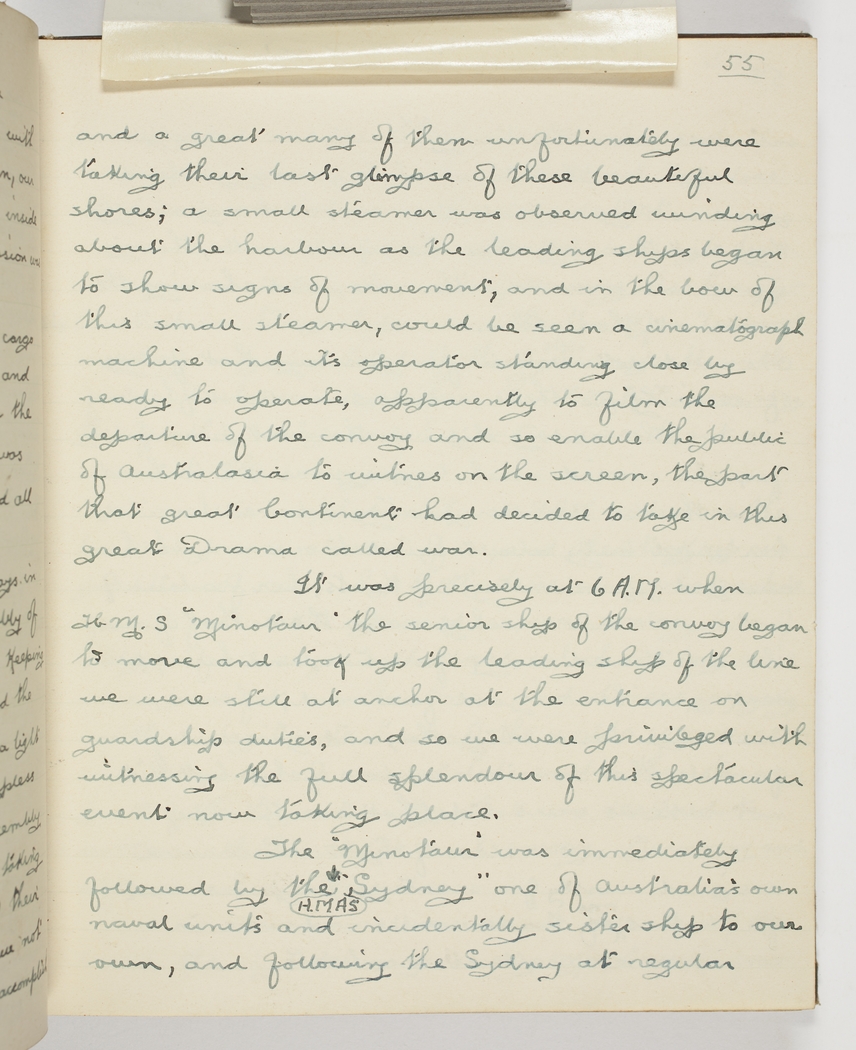 55
and a great many of them unfortunately were
taking their last glimpse of these beautiful
shores; a small steamer was observed winding
about the harbour as the leading ships began
to show signs of movement, and in the bow of
this small steamer, could be seen a cinematograph
machine and its operator standing close by
ready to operate, apparently to film the
departure of the convoy and so enable the public
of Australasia to witnes on the screen, the part
that great Continent had decided to take in this
great Drama called war.
It was precisely at 6 A.M. when
H.M.S "Minotaur" the senior ship of the convoy began
to move and took up the leading ship of the line
we were still at anchor at the entrance on
guardship duties, and so we were privileged with
witnessing the full splendour of this spectacular
event now taking place.
The "Minotaur" was immediately
followed by the "Sydney" one of Australia's own
H.M.A.S
naval units and incidentally sister ship to our
own, and following the Sydney at regular
with
n, our
inside
sion was
cargo
and
the
was
d all
ays in
bly of
keeping
d the
a light
pless
embly
taking
their
not
accomplish